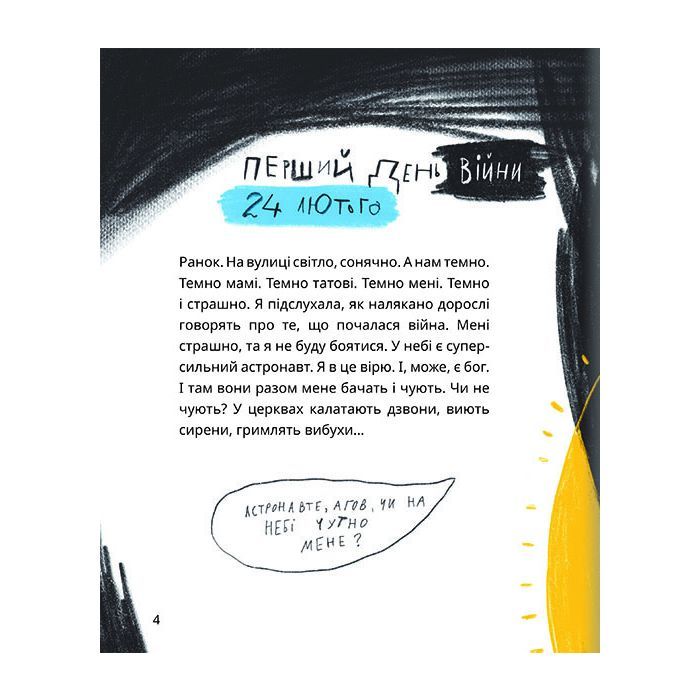 ПЕРШИЙ ДЕНЬ ВІЙНИ
24 ЛЮТОГО
Ранок. На вулиці світло, сонячно. А нам темно.
Темно мамі. Темно татові. Темно мені. Темно
і страшно. Я підслухала, як налякано дорослі
говорять про те, що почалася війна. Мені
страшно, та я не буду боятися. У небі є супер-
сильний астронавт. Я в це вірю. І, може, є бог.
І там вони разом мене бачать і чують. Чи не
чують? У церквах калатають дзвони, виють
сирени, гримлять вибухи...
АСТРОНАВТЕ, АГОВ, ЧИ НА
НЕБІ ЧУТНО
МЕНЕ?
4